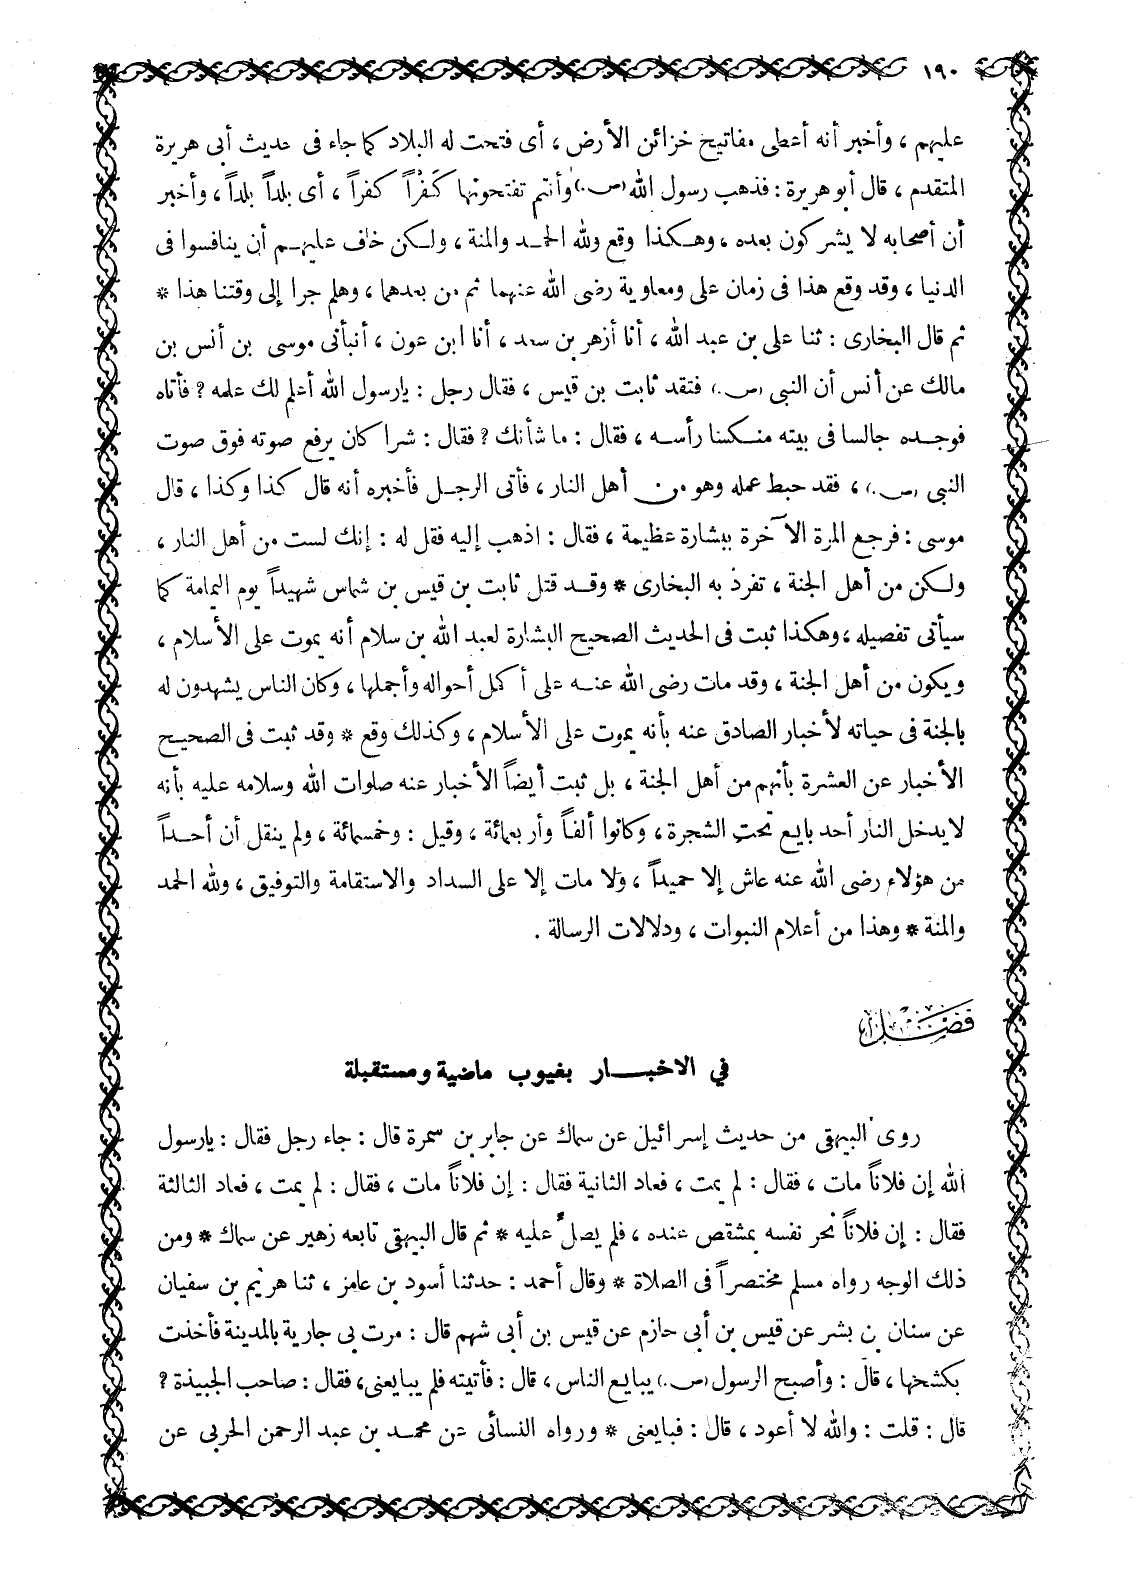 ١٩٠
عليهم ، وأخبر أنه أعطى مفاتيح خزائن الأرض ، أى فتحت له البلاد كما جاء فى حديث أبى هريرة
المتقدم ، قال أبو هريرة : فذهب رسول الله (ص.) وأنتم تفتحونها كَفْراً كفراً ، أى بلداً بلداً ، وأخبر
أن أصحابه لا يشركون بعده ، وهكذا وقع ولله الحمد والمنة ، ولكن خاف عليهم أن ينافسوا فى
الدنيا ، وقد وقع هذا فى زمان على ومعاوية رضى الله عنهما ثم من بعدهما ، وهلم جرا إلى وقتنا هذا *
ثم قال البخارى : ثنا على بن عبد الله ، أنا أزهر بن سعد ، أنا ابن عون ، أنبأنى موسى بن أنس بن
مالك عن أنس أن النبى (ص.) فتقد ثابت بن قيس ، فقال رجل : يارسول الله أعلم لك علمه ؟ فأتاه
فوجده جالسا فى بيته منكسا رأسه ، فقال : ما شأنك ؟ فقال : شرا كان يرفع صوته فوق صوت
النبى (ص.) ، فقد حبط عمله وهو من أهل النار ، فأتى الرجل فأخبره أنه قال كذا وكذا ، قال
موسى : فرجع المرة الآخرة ببشارة عظيمة ، فقال : اذهب إليه فقل له : إنك لست من أهل النار ،
ولكن من أهل الجنة ، تفرد به البخارى * وقد قتل ثابت بن قيس بن شماس شهيداً يوم اليمامة كما
سيأتى تفصيله ، وهكذا ثبت فى الحديث الصحيح البشارة لعبد الله بن سلام أنه يموت على الأسلام ،
ويكون من أهل الجنة ، وقد مات رضى الله عنه على أكمل أحواله وأجملها ، وكان الناس يشهدون له
بالجنة فى حياته لأخبار الصادق عنه بأنه يموت على الأسلام ، وكذلك وقع * وقد ثبت فى الصحيح
الأخبار عن العشرة بأنهم من أهل الجنة ، بل ثبت أيضاً الأخبار عنه صلوات الله وسلامه عليه بأنه
لا يدخل النار أحد بايع تحت الشجرة ، وكانوا ألفاً وأربعمائة ، وقيل : وخمسمائة ، ولم ينقل أن أحداً
من هؤلاء رضى الله عنه عاش إلا حميداً ، ولا مات إلا على السداد والاستقامة والتوفيق ، ولله الحمد
والمنة * وهذا من أعلام النبوات ، ودلالات الرسالة .
فصل
في الاخبار بغيوب ماضية ومستقبلة
روى البيهقى من حديث إسرائيل عن سماك عن جابر بن سمرة قال : جاء رجل فقال : يارسول
الله إن فلاناً مات ، فقال : لم يمت ، فعاد الثانية فقال : إن فلاناً مات ، فقال : لم يمت ، فعاد الثالثة
فقال : إن فلاناً نحر نفسه بمشقص عنده ، فلم يصل عليه * ثم قال البيهقى تابعه زهير عن سماك * ومن
ذلك الوجه رواه مسلم مختصراً فى الصلاة * وقال أحمد : حدثنا أسود بن عامر ، ثنا هريم بن سفيان
عن سنان بن بشر عن قيس بن أبى حازم عن قيس بن أبى شهم قال : مرت بى جارية بالمدينة فأخذت
بكشحها ، قال : وأصبح الرسول (ص.) يبايع الناس ، قال : فأتيته فلم يبايعنى ، فقال : صاحب الجبيذة ؟
قال : قلت : والله لا أعود ، قال : فبايعنى * ورواه النسائى عن محمد بن عبد الرحمن الحربى عن